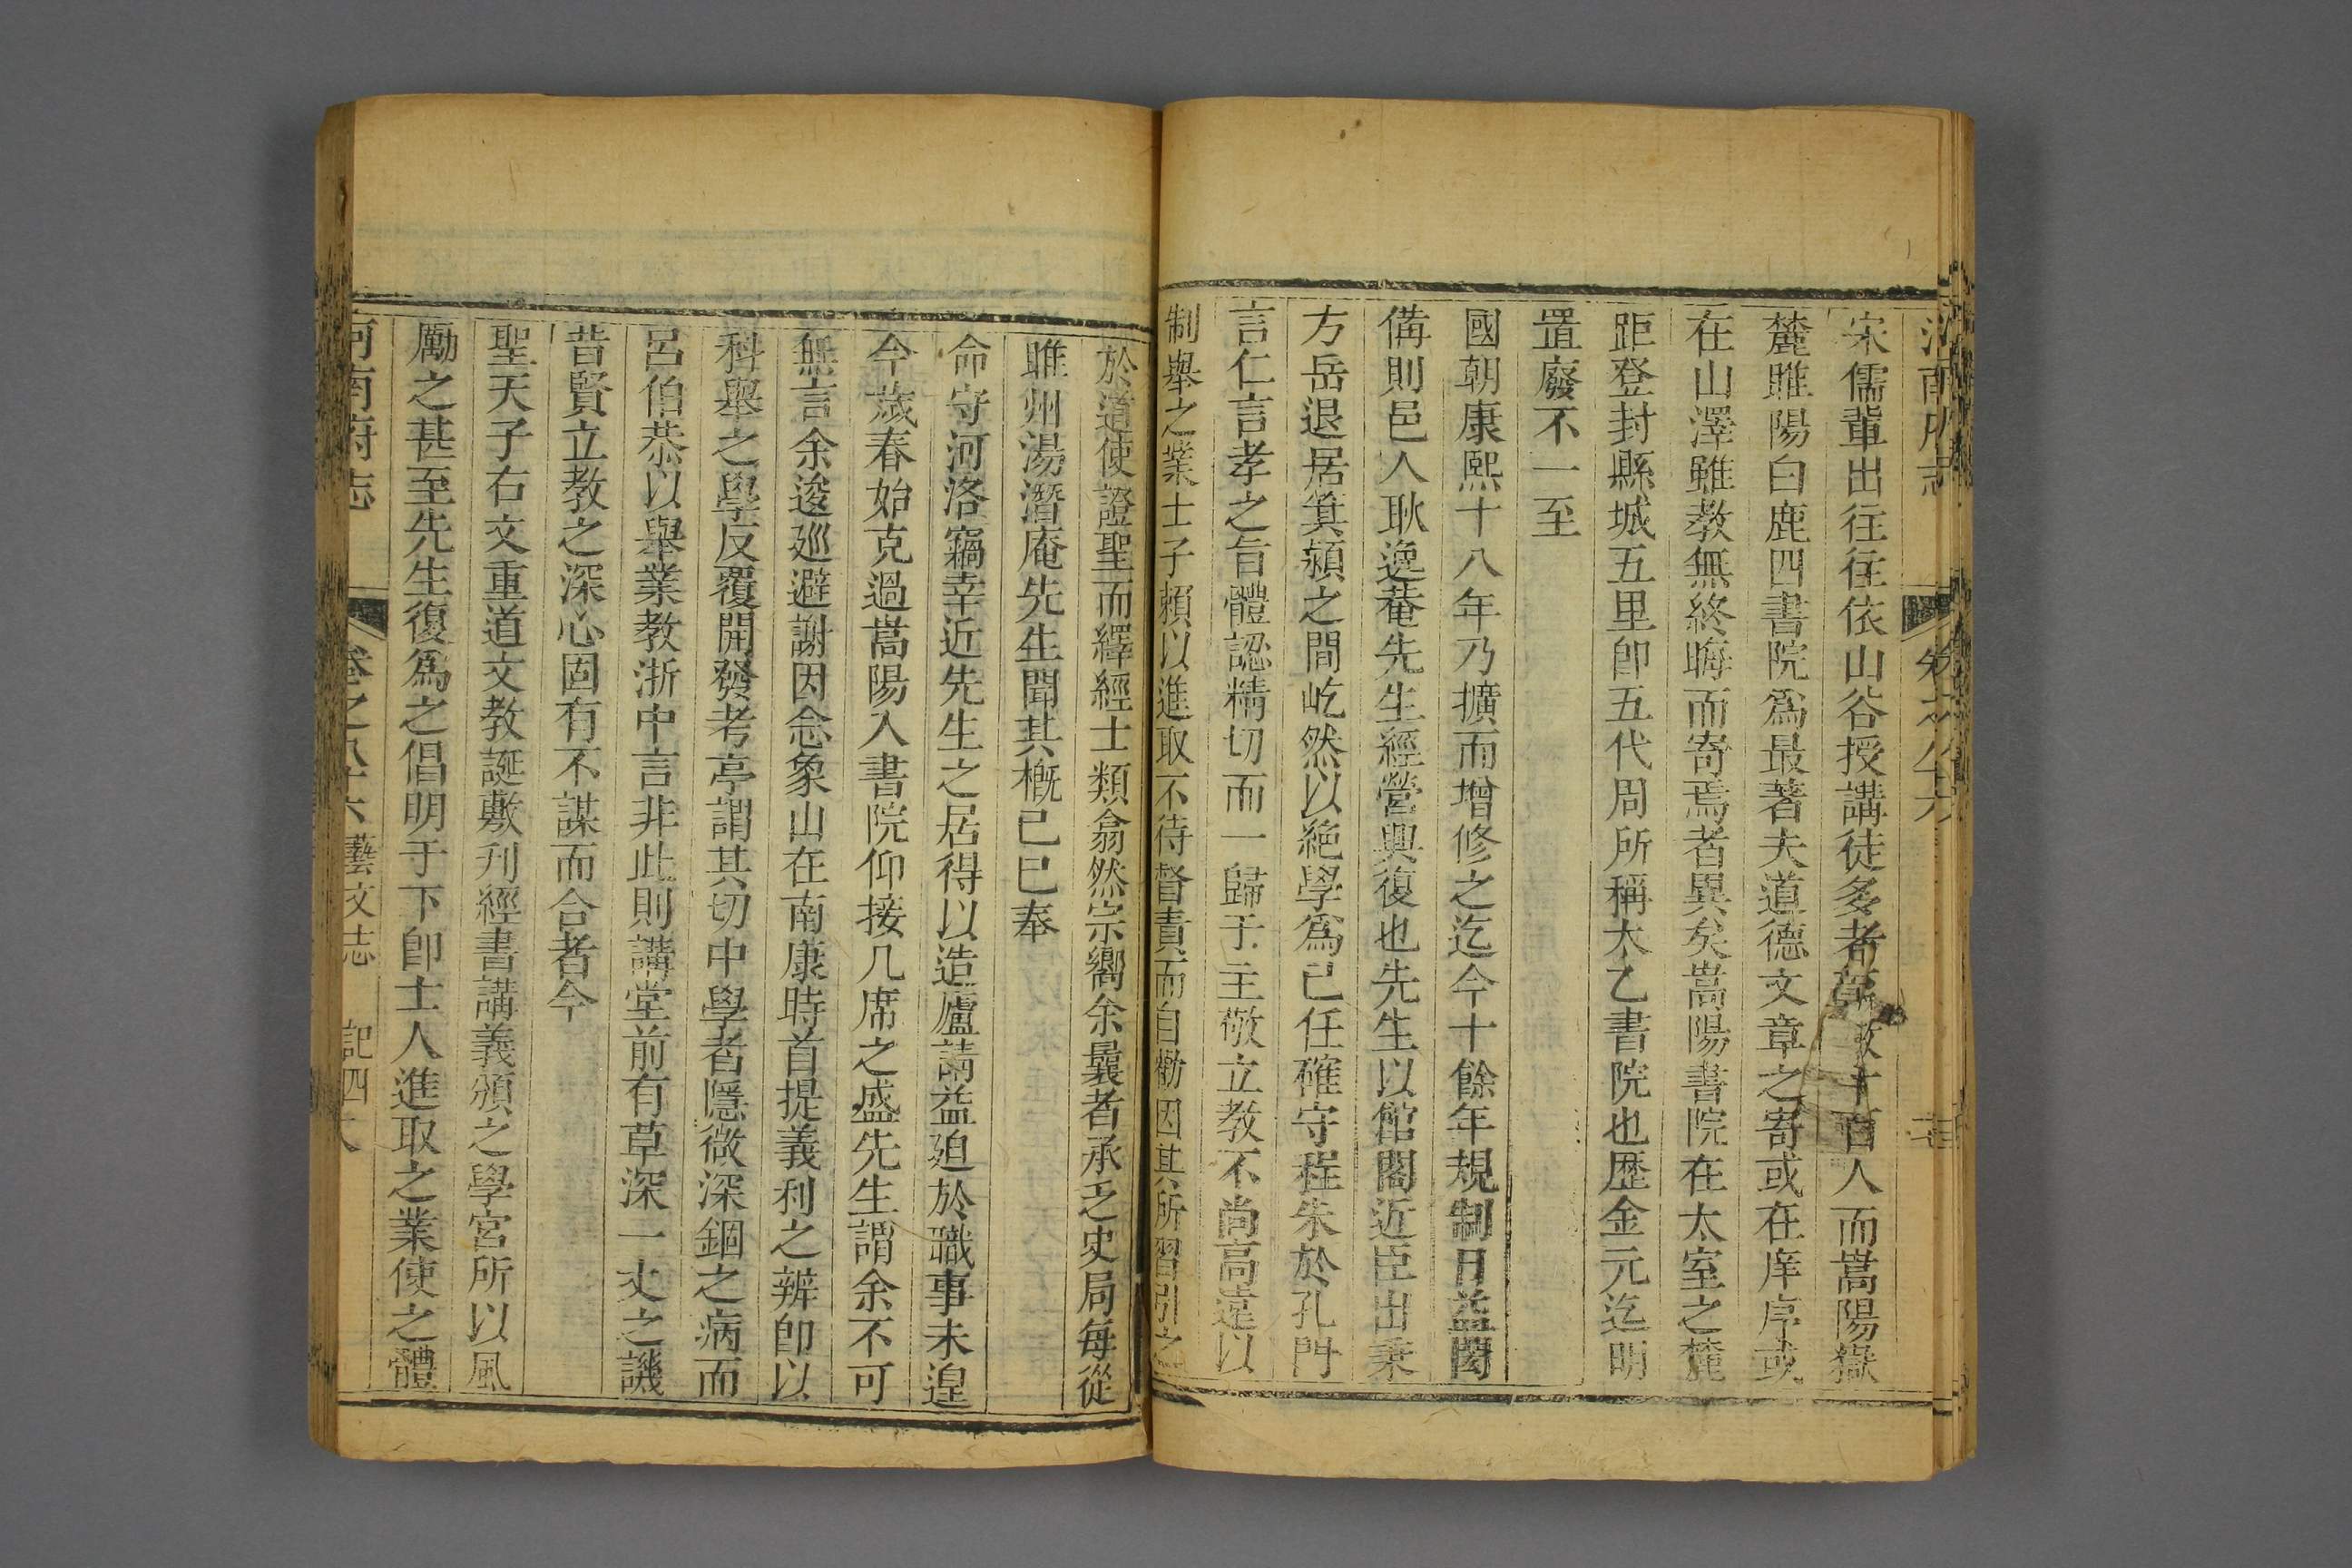 宋儒輩出往往依山谷授講徒多者數十百人而嵩陽嶽
麓雎陽白鹿四書院爲最著夫道德文章之寄或在庠序或
在山澤雖教無終晦而寄焉者異矣嵩陽書院在太室之麓
距登封縣城五里卽五代周所稱太乙書院也歷金元迄明
置廢不一至
國朝康熙十八年乃擴而增修之迄今十餘年規制日益閎
備則邑人耿逸菴先生經營興復也先生以館閣近臣出秉
方岳退居箕潁之間屹然以絶學爲己任確守程朱於孔門
言仁言孝之旨體認精切而一歸于主敬立教不尚高遠以
制舉之業士子頼以進取不待督責而自勸因其所習引之
於道使證聖而繹經士類翕然宗嚮余曩者承乏史局每從
雎州湯潛庵先生聞其槪己巳奉
命守河洛竊幸近先生之居得以造廬請益廹於職事未遑
今歳春始克過嵩陽入書院仰接几席之盛先生謂余不可
無言余逡廵避謝因念象山在南康時首提義利之辨卽以
科舉之學反覆開發考亭謂其切中學者隱微深錮之病而
呂伯恭以舉業教浙中言非此則講堂前有草深一丈之譏
昔賢立教之深心固有不謀而合者今
聖天子右文重道文教誕敷刋經書講義頒之學宮所以風
勵之甚至先生復爲之倡明于下卽士人進取之業使之體
河南府志 卷之八十六 藝文志 記四